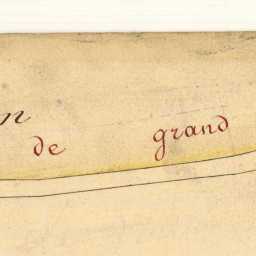 de grand